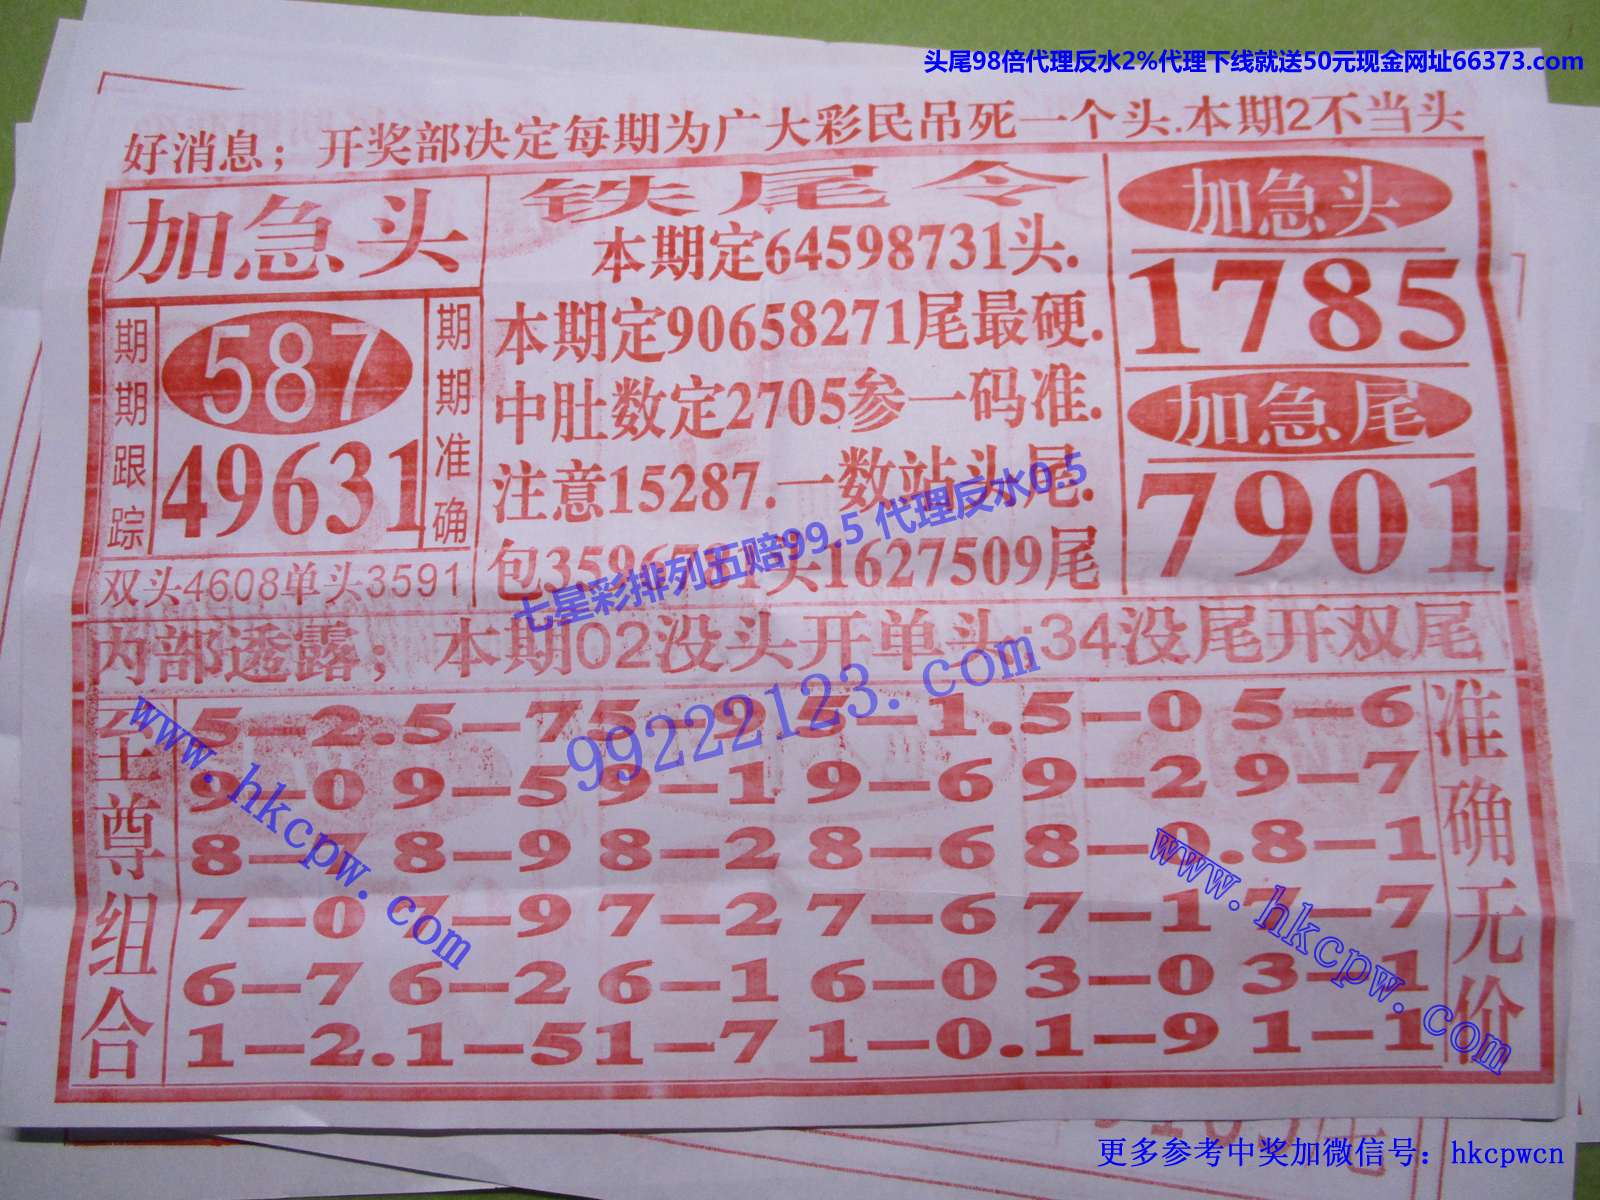 头尾98倍代理反水2%代理下线就送50元现金网址66373.com
好消息；开奖部决定每期为广大彩民吊死一个头.本期2不当头
加急头
期期跟踪
587
49631
期期准确
双头4608单头3591
铁尾令
本期定64598731头.
本期定90658271尾最硬.
中肚数定2705参一码准.
注意15287.一数站头尾.
包3596781头1627509尾
加急头
1785
加急尾
7901
七星彩排列五赔99.5 代理反水0.5
内部透露；本期02没头开单头;34没尾开双尾
99222123.com
至尊组合
5-2.5-7 5-9 5-1.5-0 5-6
9-0 9-5 9-1 9-6 9-2 9-7
8-7 8-9 8-2 8-6 8-0.8-1
7-0 7-9 7-2 7-6 7-1 7-7
6-7 6-2 6-1 6-0 3-0 3-1
1-2.1-5 1-7 1-0.1-9 1-1
准确无价
www.hkcpw.com
www.hkcpw.com
更多参考中奖加微信号：hkcpwcn